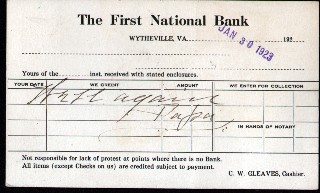 The First National Bank
WYTHEVILLE, VA. 192
JAN 30 1923
Yours of the inst. received with stated enclosures.
YOUR DATE WE CREDIT AMOUNT WE ENTER FOR COLLECTION
again
Papa
IN HANDS OF NOTARY
Not responsible for lack of protest at points where there is no Bank.
All items (except Checks on us) are credited subject to payment.
C. W. GLEAVES, Cashier.